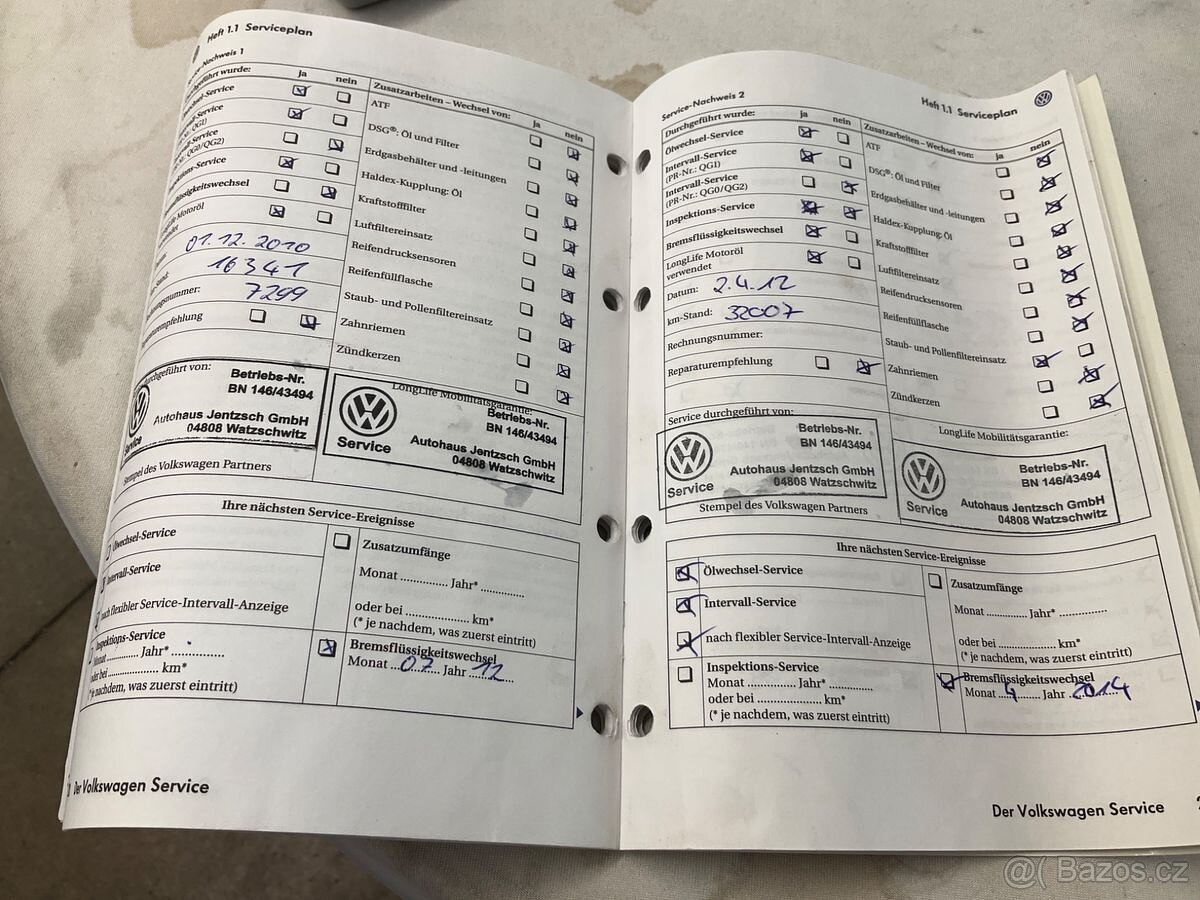 Heft 1.1 Serviceplan
Service-Nachweis 1
Durchgeführt wurde:
ja
nein
Ölwechsel-Service
Intervall-Service
(PR-Nr.: QG1)
Intervall-Service
(PR-Nr.: QG0/QG2)
Inspektions-Service
Bremsflüssigkeitswechsel
LongLife Motoröl
verwendet
01.12.2010
16341
7299
Reparaturempfehlung
Zusatzarbeiten – Wechsel von:
ja
nein
ATF
DSG®: Öl und Filter
Erdgasbehälter und -leitungen
Haldex-Kupplung: Öl
Kraftstofffilter
Luftfiltereinsatz
Reifendrucksensoren
Reifenfüllflasche
Staub- und Pollenfiltereinsatz
Zahnriemen
Zündkerzen
durchgeführt von:
Betriebs-Nr.
BN 146/43494
Autohaus Jentzsch GmbH
04808 Watzschwitz
Service
Stempel des Volkswagen Partners
LongLife Mobilitätsgarantie:
Betriebs-Nr.
BN 146/43494
Autohaus Jentzsch GmbH
04808 Watzschwitz
Service
Ihre nächsten Service-Ereignisse
Ölwechsel-Service
Intervall-Service
nach flexibler Service-Intervall-Anzeige
Inspektions-Service
Monat ............ Jahr* ............
oder bei ............ km*
(* je nachdem, was zuerst eintritt)
Zusatzumfänge
Monat ............ Jahr* ............
oder bei ............ km*
(* je nachdem, was zuerst eintritt)
Bremsflüssigkeitswechsel
Monat 07 Jahr 12
Der Volkswagen Service
Heft 1.1 Serviceplan
Service-Nachweis 2
Durchgeführt wurde:
ja
nein
Ölwechsel-Service
Intervall-Service
(PR-Nr.: QG1)
Intervall-Service
(PR-Nr.: QG0/QG2)
Inspektions-Service
Bremsflüssigkeitswechsel
LongLife Motoröl
verwendet
Datum: 2.4.12
km-Stand: 32007
Rechnungsnummer:
Reparaturempfehlung
Zusatzarbeiten – Wechsel von:
ja
nein
ATF
DSG®: Öl und Filter
Erdgasbehälter und -leitungen
Haldex-Kupplung: Öl
Kraftstofffilter
Luftfiltereinsatz
Reifendrucksensoren
Reifenfüllflasche
Staub- und Pollenfiltereinsatz
Zahnriemen
Zündkerzen
Service durchgeführt von:
Betriebs-Nr.
BN 146/43494
Autohaus Jentzsch GmbH
04808 Watzschwitz
Service
Stempel des Volkswagen Partners
LongLife Mobilitätsgarantie:
Betriebs-Nr.
BN 146/43494
Autohaus Jentzsch GmbH
04808 Watzschwitz
Service
Ihre nächsten Service-Ereignisse
Ölwechsel-Service
Intervall-Service
nach flexibler Service-Intervall-Anzeige
Inspektions-Service
Monat ............ Jahr* ............
oder bei ............ km*
(* je nachdem, was zuerst eintritt)
Zusatzumfänge
Monat ............ Jahr* ............
oder bei ............ km*
(* je nachdem, was zuerst eintritt)
Bremsflüssigkeitswechsel
Monat 4 Jahr 2014
Der Volkswagen Service
@( Bazos.cz